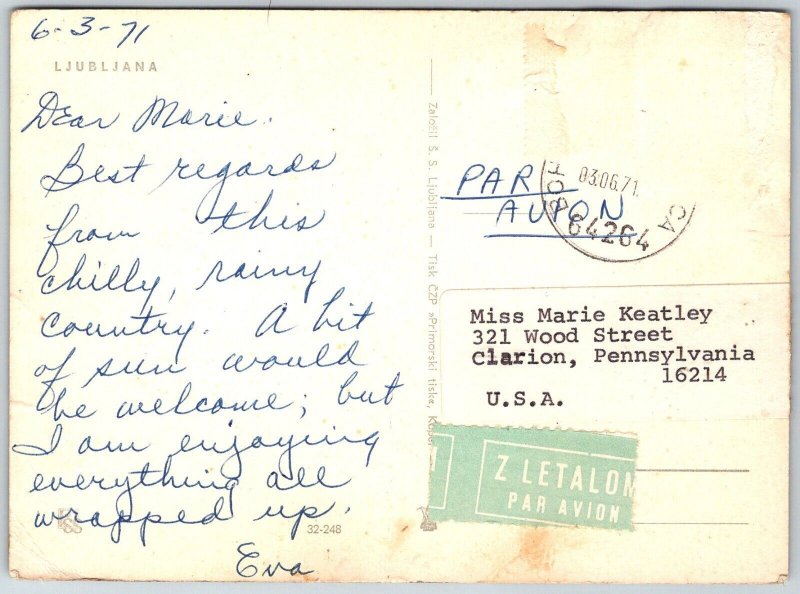 6-3-71
LJUBLJANA
Dear Marie.
Best regards
from this
chilly, rainy
country. A bit
of sun would
be welcome; but
I am enjoying
everything all
wrapped up.
Eva
32-248
Založil Š. S. Ljubljana — Tisk ČZP »Primorski tisk«, Koper
PAR
AVION
BOH
03.06.71.
CA
64264
Miss Marie Keatley
321 Wood Street
Clarion, Pennsylvania
16214
U.S.A.
Z LETALOM
PAR AVION